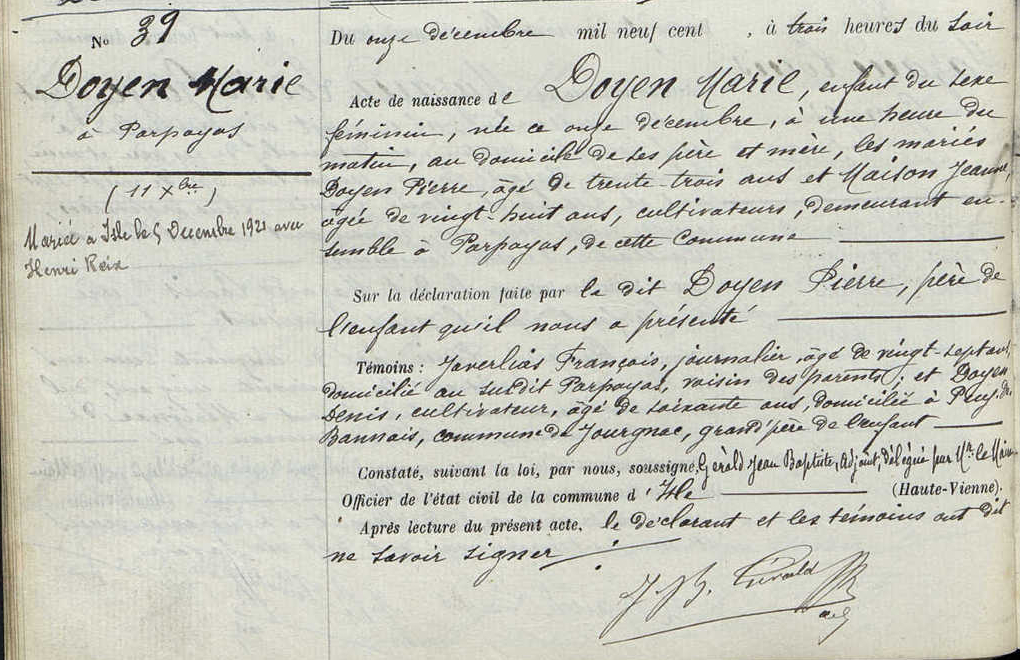 No 39
Doyen Marie
à Parpayas
(11 Xbre)
Mariée à Isle le 5 Décembre 1921 avec
Henri Reix
Du onze décembre mil neuf cent , à trois heures du soir
Acte de naissance de Doyen Marie, enfant du sexe
féminin, née ce onze décembre, à une heure du
matin, au domicile de ses père et mère, les mariés
Doyen Pierre, âgé de trente-trois ans et Maison Jeanne,
âgée de vingt-huit ans, cultivateurs, demeurant en-
semble à Parpayas, de cette Commune
Sur la déclaration faite par le dit Doyen Pierre, père de
l'enfant qu'il nous a présenté
Témoins : Javerlias François, journalier, âgé de vingt-sept ans,
domicilié au susdit Parpayas, voisin des parents; et Doyen
Denis, cultivateur, âgé de soixante ans, domicilié à Puy-de-
Bannais, commune de Jourgnac, grand'père de l'enfant
Constaté, suivant la loi, par nous, soussigné, Gérald Jean Baptiste, Adjoint, délégué par Mr. le Maire
Officier de l'état civil de la commune d'Isle (Haute-Vienne).
Après lecture du présent acte, le déclarant et les témoins ont dit
ne savoir signer
J B. Gérald